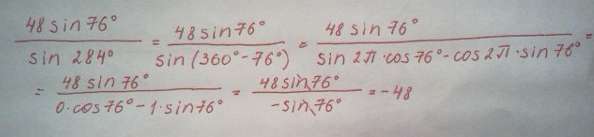 48 sin 76° / sin 284° = 48 sin 76° / sin (360° - 76°) = 48 sin 76° / sin 2π · cos 76° - cos 2π · sin 76° =
= 48 sin 76° / 0 · cos 76° - 1 · sin 76° = 48 sin 76° / - sin 76° = - 48